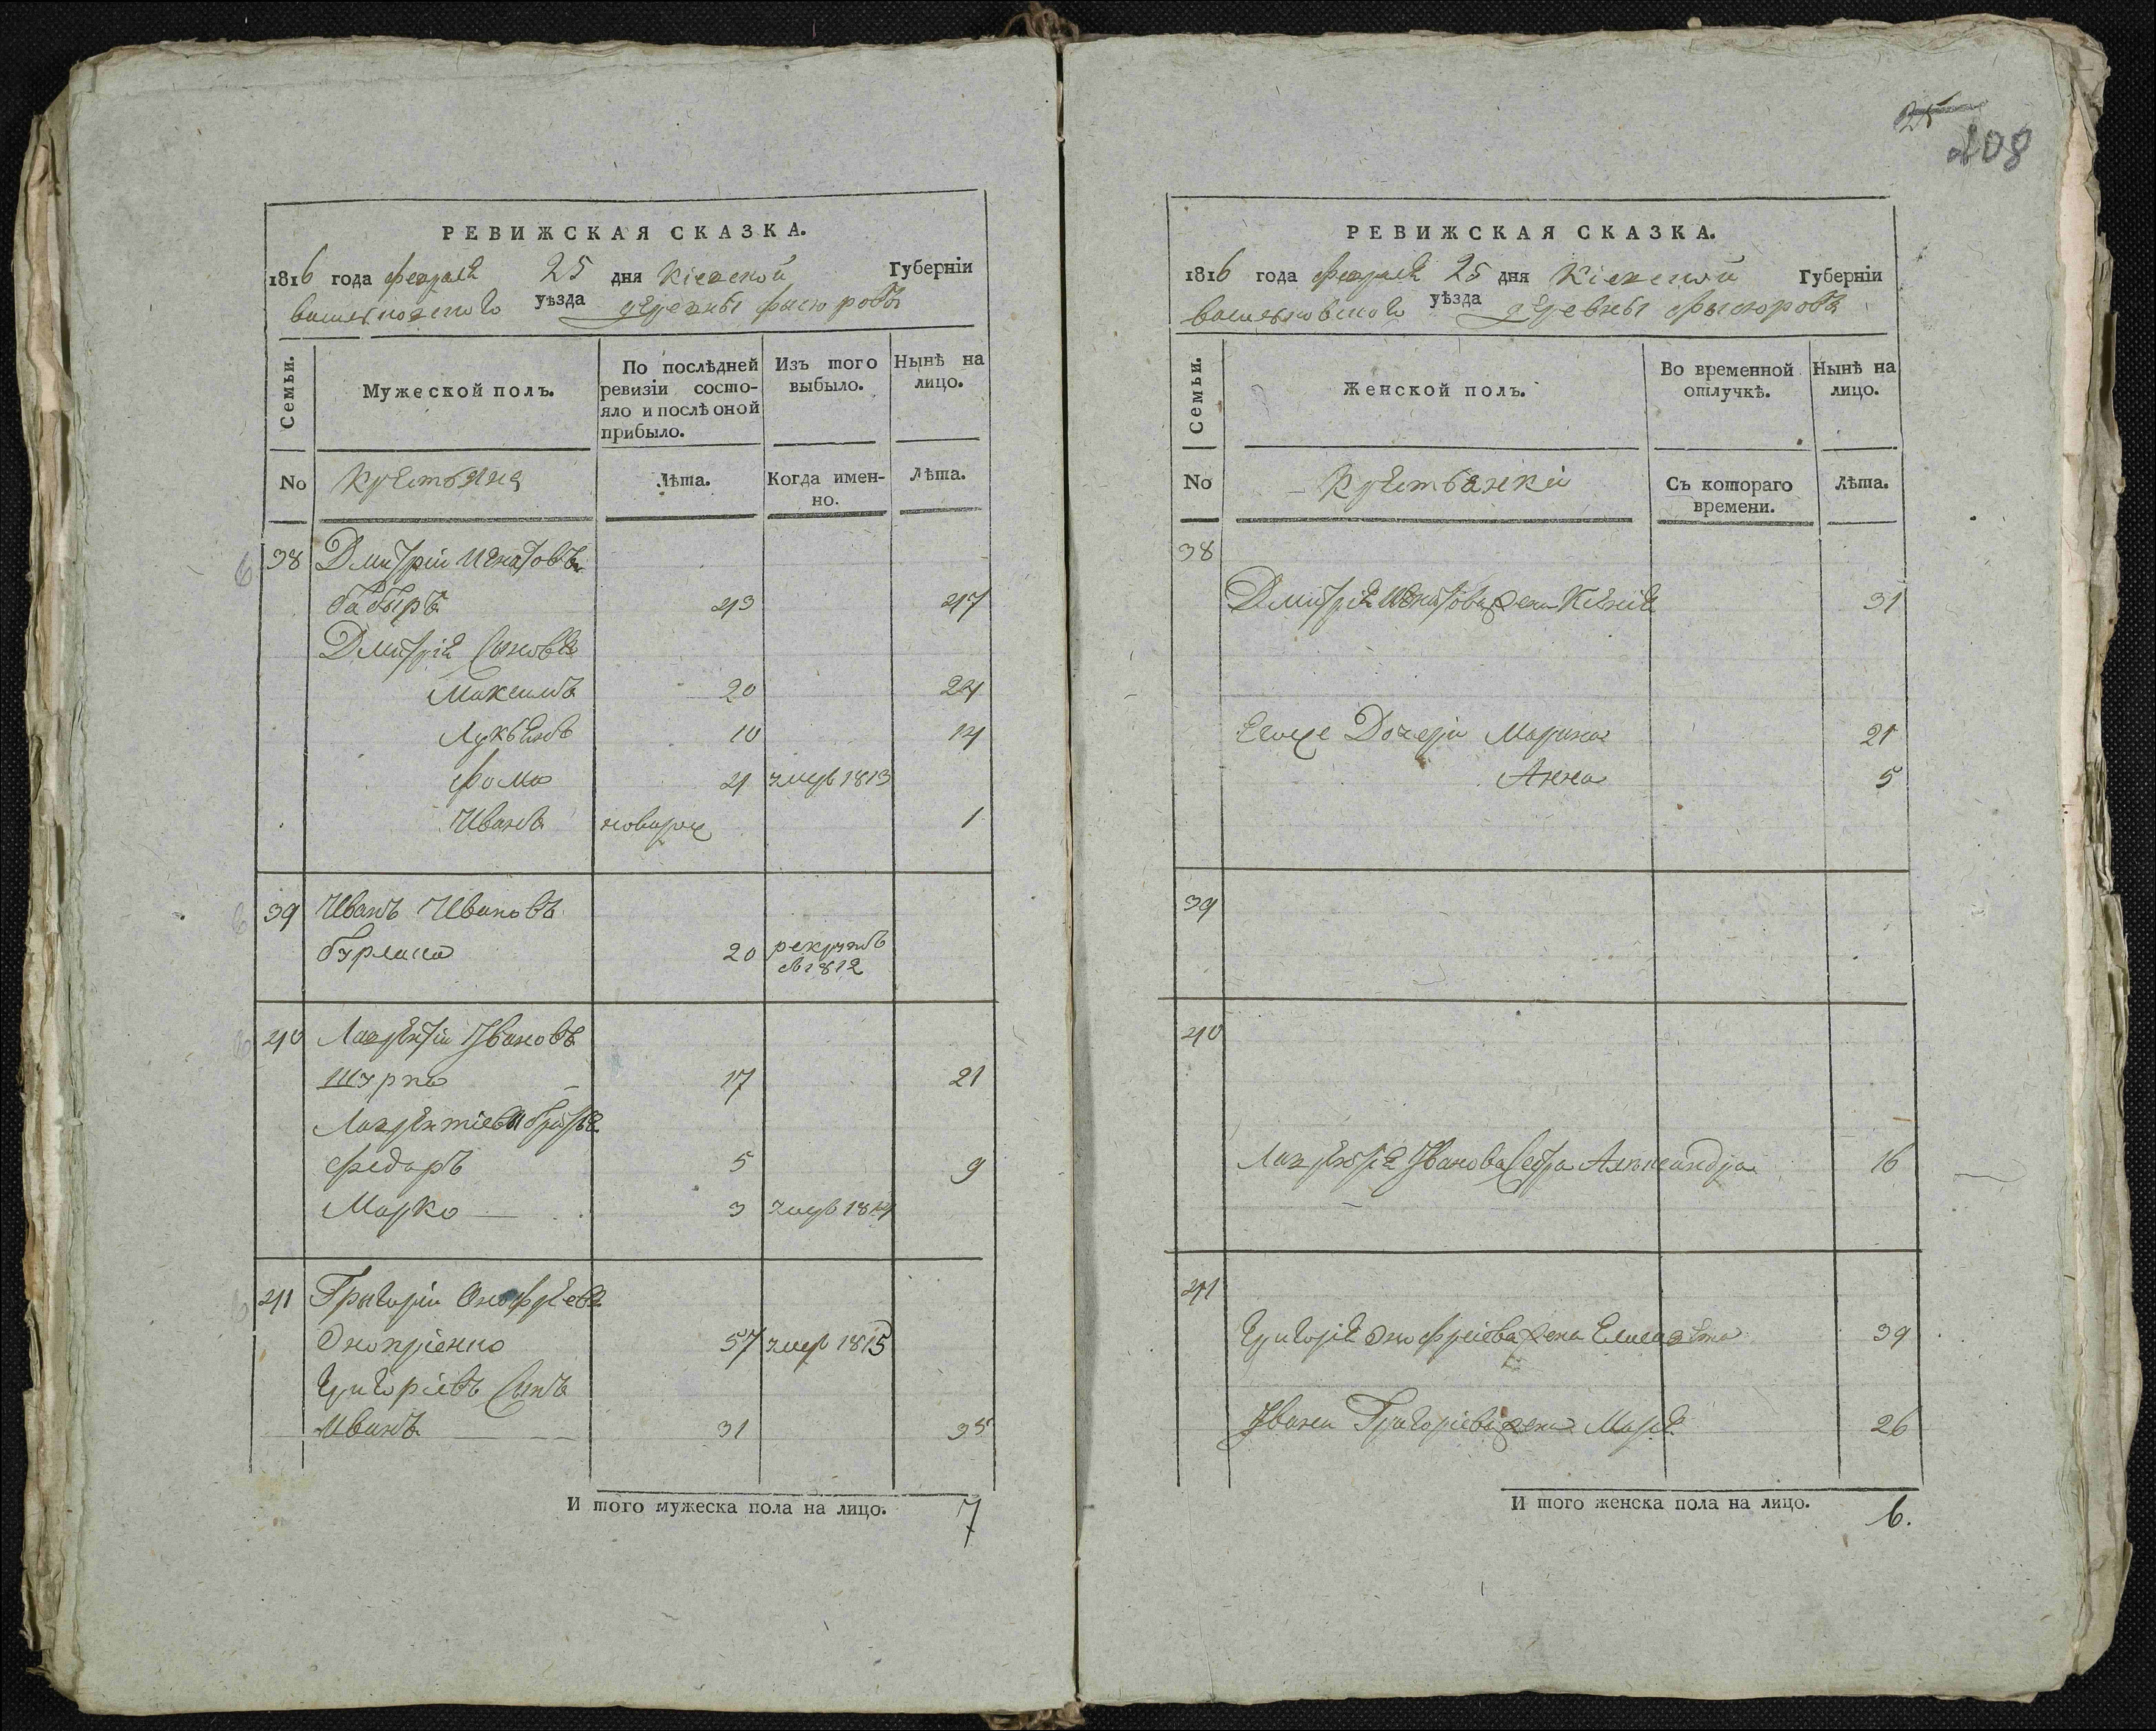 РЕВИЖСКАЯ СКАЗКА.
1816 года февраля 25 дня Кіевской Губерніи
васильковского уѣзда деревны фастовки
Семьи.
Мужеской полъ.
По послѣдней ревизіи состо-
яло и послѣ оной
прибыло.
Изъ того
выбыло.
Нынѣ на
лицо.
No
Крестьяна
Лѣта.
Когда имен-
но.
Лѣта.
38 Дмитрій Игнатовъ
бабыръ 43 47
Дмитрія Сыновья
Максимъ 20 24
Лукьянъ 10 14
фома 4 умеръ 1813
Иванъ новорож 1
39 Иванъ Ивановъ
бурлака 20 рекрутъ
в 1812
40 Лаврентій Ивановъ
шурка 17 21
Лаврентіевы братья
федоръ 5 9
Марко 3 умеръ 1814
41 Григорій Онофреевъ
Онопріенко 57 умеръ 1815
Григоріевъ Сынъ
Иванъ 31 35
И того мужеска пола на лицо. 7
25
208
РЕВИЖСКАЯ СКАЗКА.
1816 года февраля 25 дня Кіевской Губерніи
васильковского уѣзда деревны
Семьи.
Женской полъ.
Во временной
отлучкѣ.
Нынѣ на
лицо.
No
Крестьянки
Съ котораго
времени.
Лѣта.
38
Дмитрія Игнатова жена Ксенія 31
Егоже Дочери Марина 21
Анна 5
39
40
Лаврентія Иванова Сестра Александра 16
41
Григорія Онофріева жена Елисавета 39
Ивана Григоріева жена Марья 26
И того женска пола на лицо. 6.